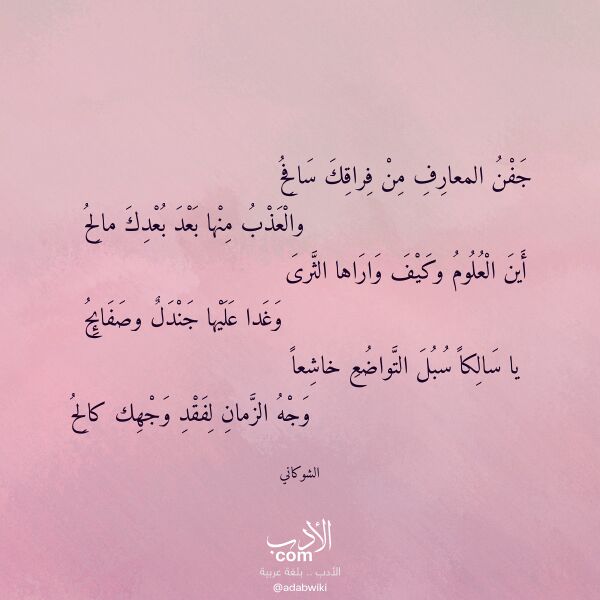 جَفْنُ المعارِفِ مِنْ فِراقِكَ سَافِحُ
والْعَذْبُ مِنْها بَعْدَ بُعْدِكَ مالِحُ
أَينَ الْعُلُومُ وكَيْفَ وَارَاها الثَّرىَ
وَغَدا عَلَيْها جَنْدَلٌ وصَفَائِحُ
يا سَالِكاً سُبُلَ التَّواضُعِ خاشِعاً
وَجْهُ الزَّمانِ لِفَقْدِ وَجْهِك كالِحُ
الشوكاني
الأدب
com
الأدب .. بلغة عربية
@adabwiki